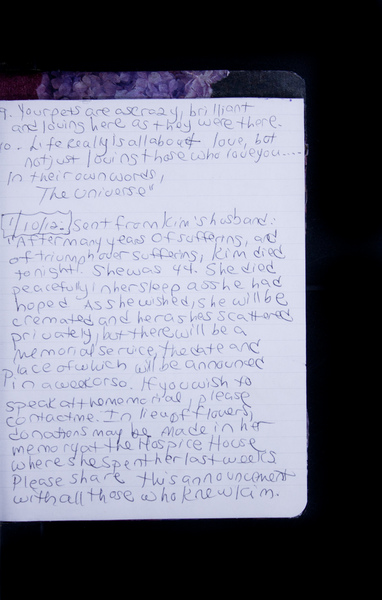 9. Your pets are as crazy, brilliant
and loving here as they were there.
10. Life really Is all about love, but
not just loving those who love you....
In their own words,
The Universe"
1/10/12: Sent from Kim's husband:
"After many years of suffering, and
of triumph over suffering, Kim died
tonight. She was 44. She died
peacefully in her sleep as she had
hoped. As she wished, she will be
cremated and her ashes scattered
privately, but there will be a
memorial service, the date and
place of which will be announced
in a week or so. If you wish to
speak at the memorial, please
contact me. In lieu of flowers,
donations may be made in her
memory at the Hospice House
where she spent her last weeks.
Please share this announcement
with all those who knew Kim.